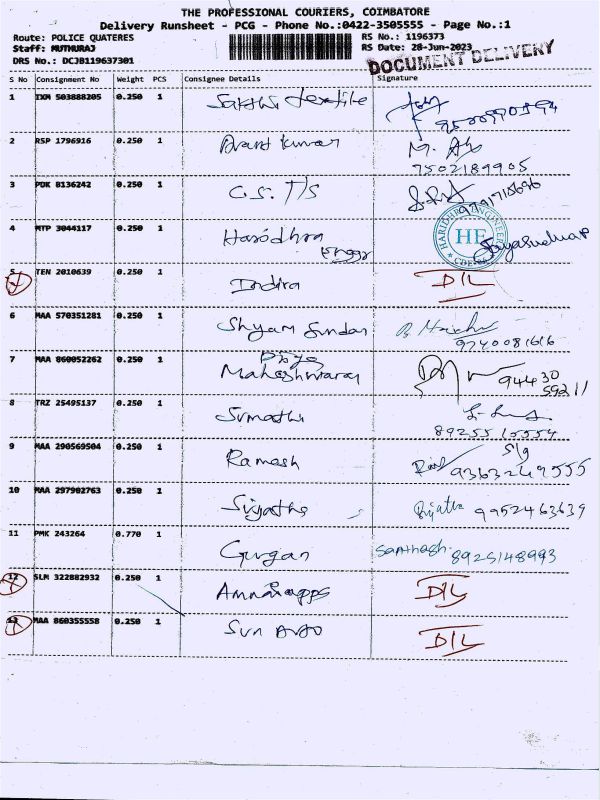 THE PROFESSIONAL COURIERS, COIMBATORE
Delivery Runsheet - PCG - Phone No.:0422-3505555 - Page No.:1
Route: POLICE QUATERES RS No.: 1196373
Staff: MUTHURAJ RS Date: 28-Jun-2023
DRS No.: DCJB119637301
DOCUMENT DELIVERY
S No Consignment No Weight PCS Consignee Details Signature
1 IXM 503888205 0.250 1 Sakthi textile
2 RSP 1796916 0.250 1 Kumar
7502189905
3 PDK 8136242 0.250 1 C.S. T/S 9791715696
4 MTP 3044117 0.250 1 Engg
HE
5 TEN 2010639 0.250 1 Indira D/L
6 MAA 570351281 0.250 1 Shyam Sundar
9740081616
7 MAA 860052262 0.250 1 94430
59211
8 TRZ 25495137 0.250 1 Sumathi
8925515554
9 MAA 290569504 0.250 1 Ramesh 9363249555
10 MAA 297902763 0.250 1 Sujatha Sujatha 9952463639
11 PMK 243264 0.770 1 Gurgan Santhosh 8925148993
12 SLM 322882932 0.250 1 D/L
13 MAA 860355558 0.250 1 Sun D/L